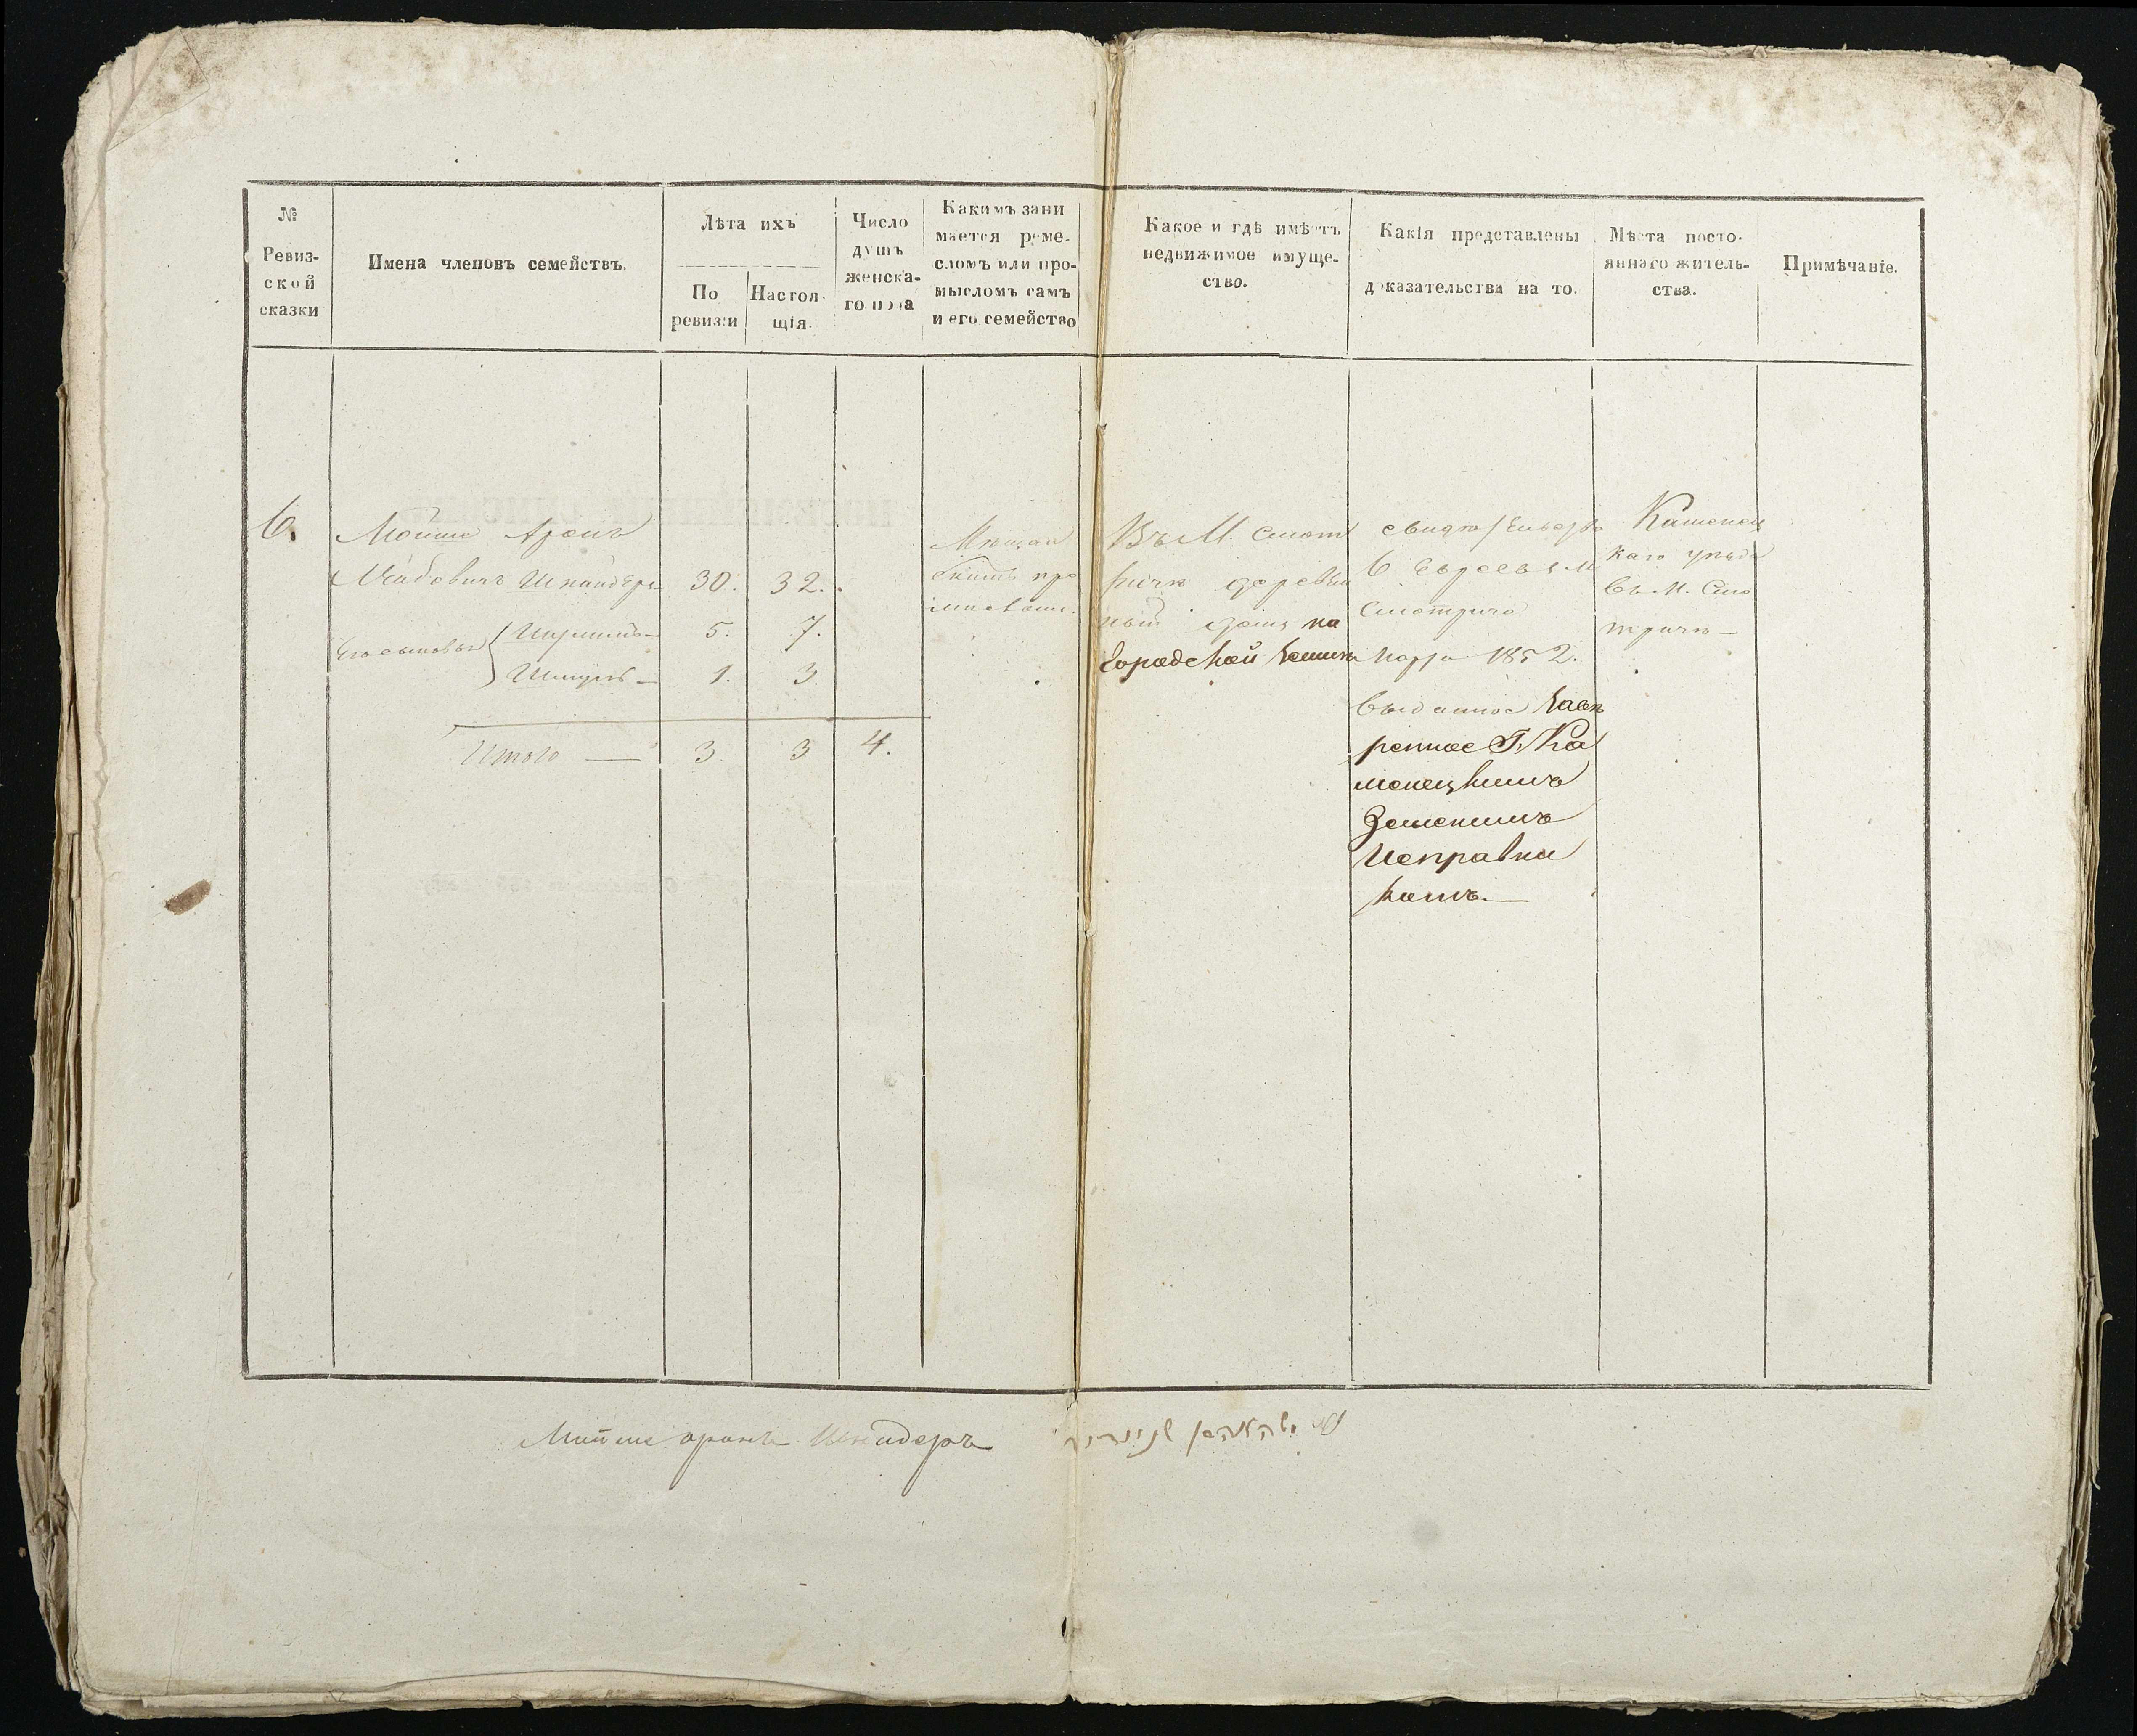 №
Ревиз-
ской
сказки
Имена членовъ семействъ.
Лѣта ихъ
По
ревизіи
Настоя-
щія.
Число
душъ
женска-
го пола
Какимъ зани
мается реме-
сломъ или про-
мысломъ самъ
и его семейство
Какое и гдѣ имѣетъ
недвижимое имуще-
ство.
Какія представлены
доказательства на то.
Мѣста посто-
яннаго житель-
ства.
Примѣчаніе.
6.
Мойше Аронъ
Шнайдеръ 30. 32.
Его сыновья 5. 7.
1. 3.
Итого — 3 3 4.
Мѣщан
скимъ про
мысломъ.
Въ М. Смот
ричѣ деревян
ный домъ на
городской земли
свидѣтельство
Евреевъ М.
Смотрича
марта 1852.
выданное завѣ
ренное Г. Ка
менецкимъ
Земскимъ
Исправни
комъ.—
Каменец
каго уѣзда
въ М. Смо
тричѣ—
Мойше аронъ Шнадеръ